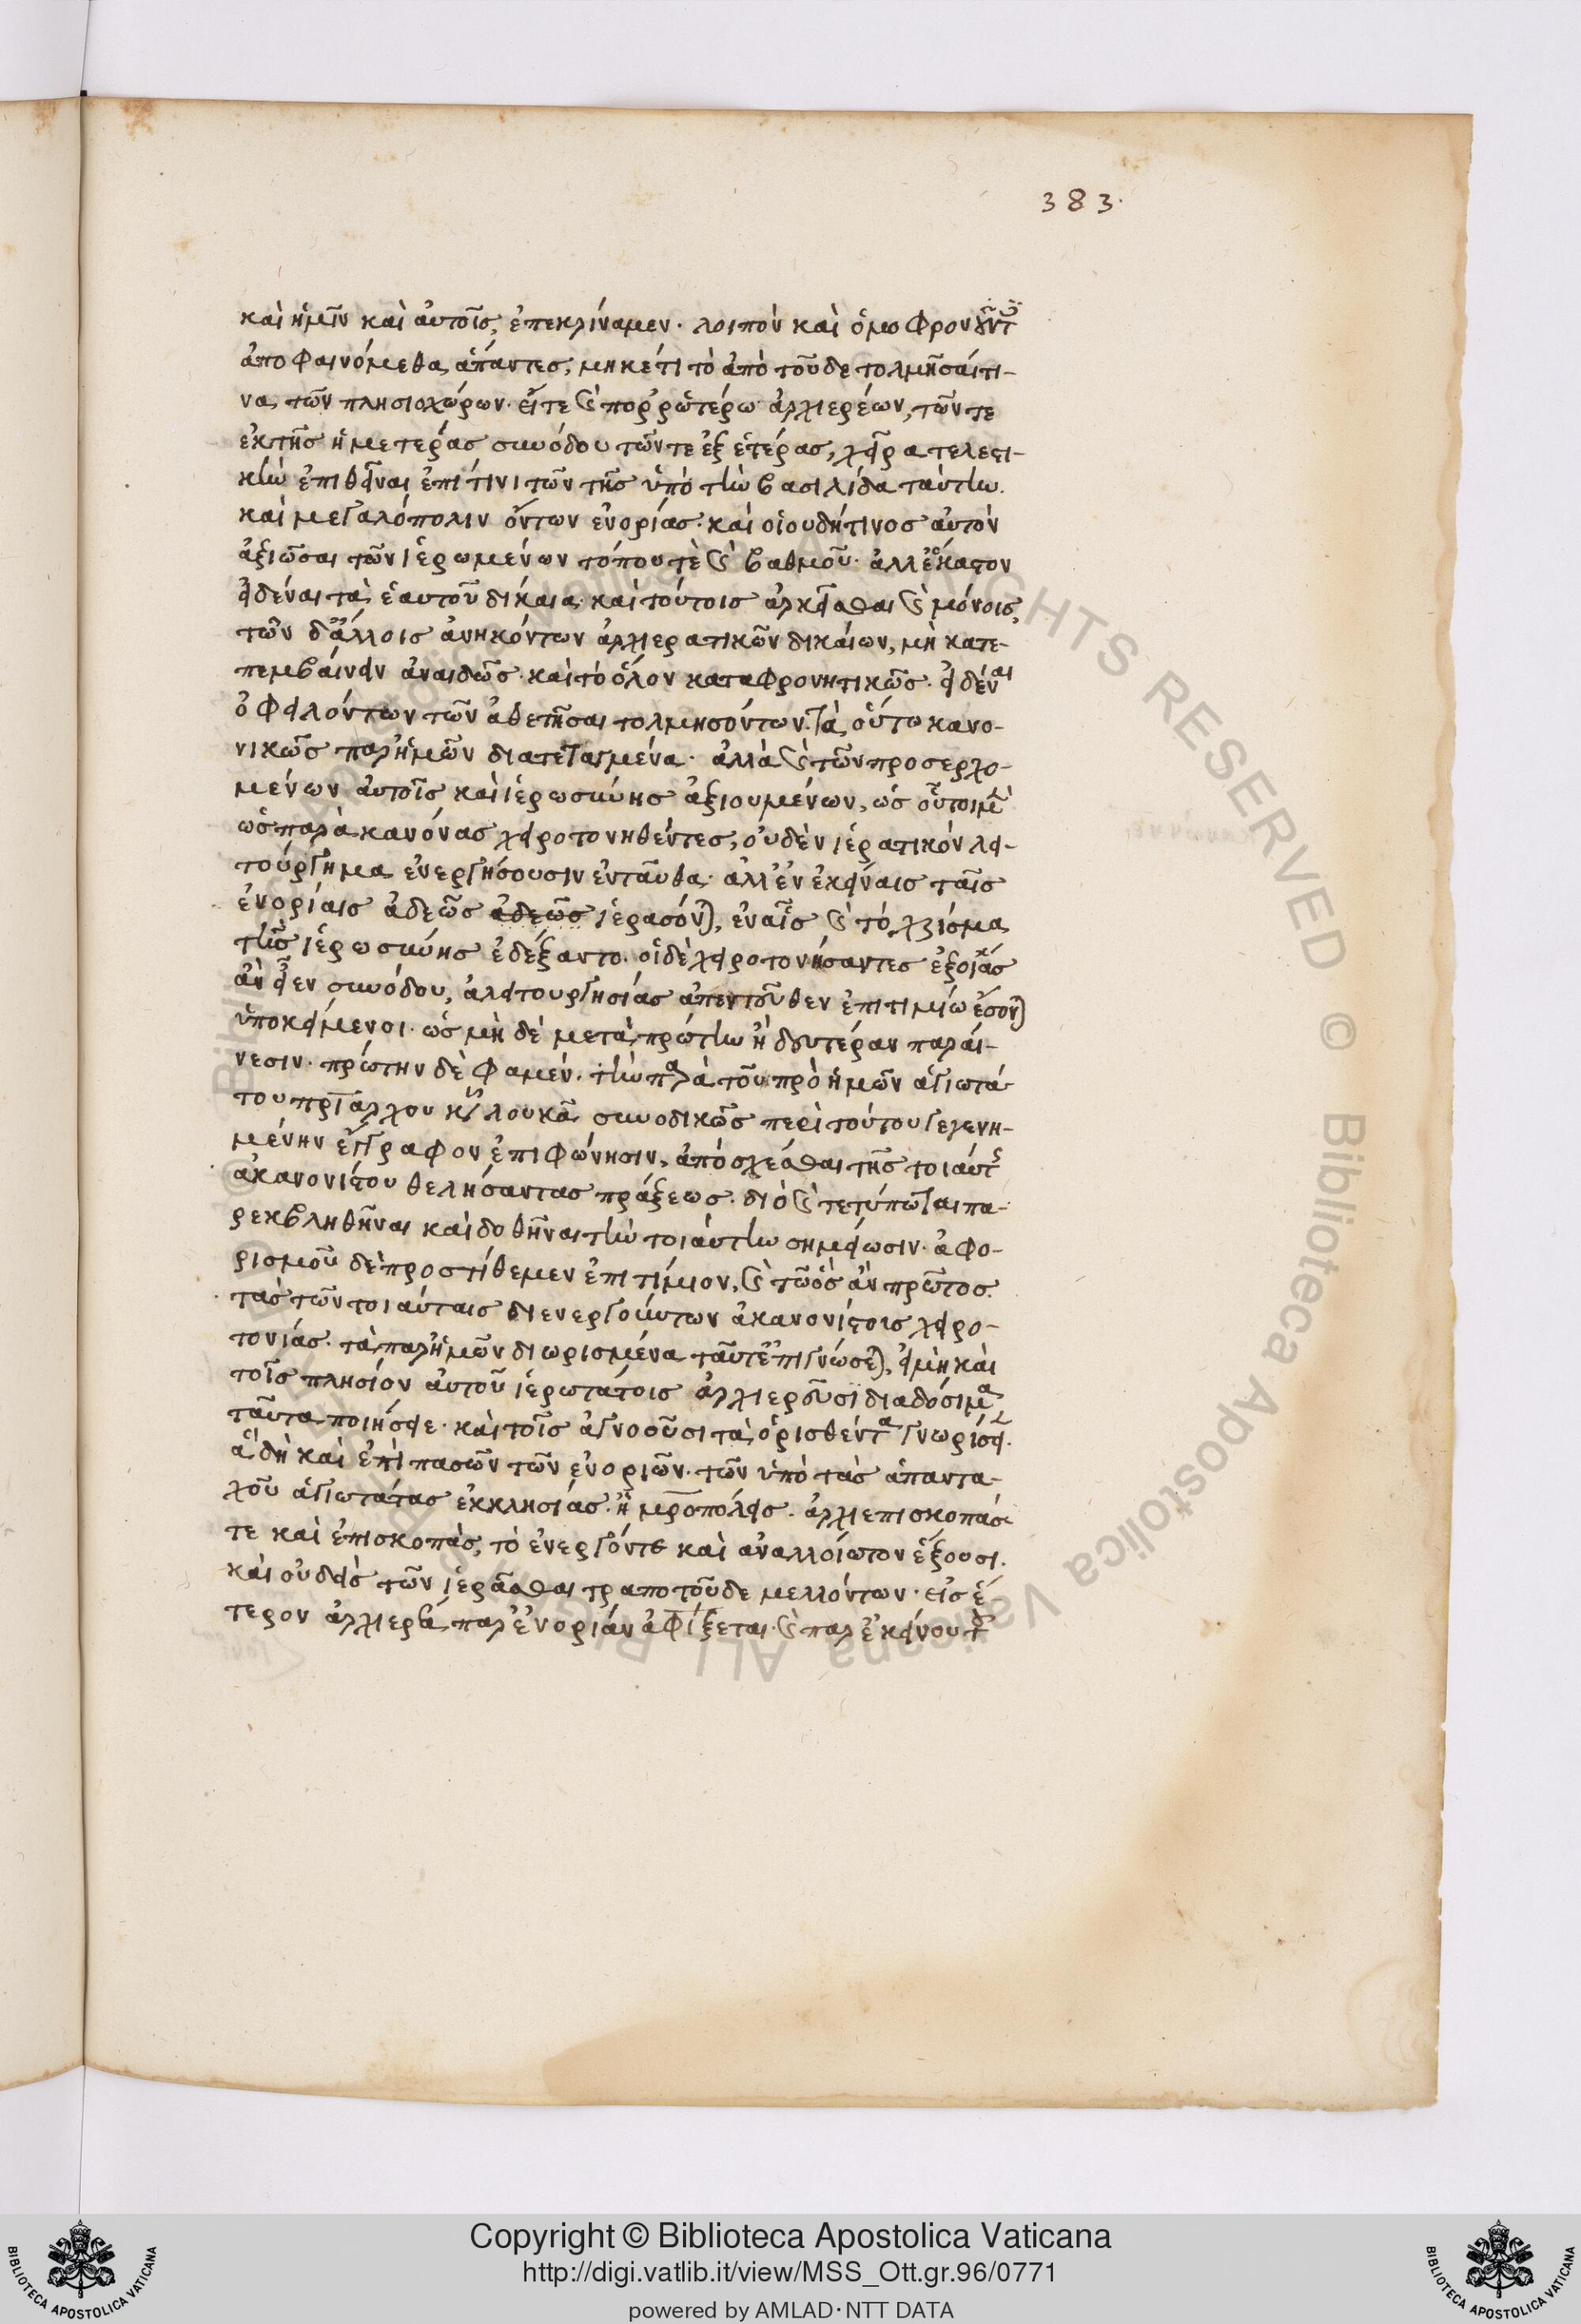 383.
καὶ ἡμῖν καὶ αὐτοῖς, ἐπεκλίναμεν. λοιπὸν καὶ ὁμοφρονοῦντες
ἀποφαινόμεθα ἅπαντες, μηκέτι τὸ ἀπὸ τοῦδε τολμῆσαί τι-
να τῶν πλησιοχώρων. εἴτε καὶ πορρωτέρω ἀρχιερέων, τῶν τε
ἐκ τῆς ἡμετέρας συνόδου τῶν τε ἐξ ἑτέρας, χεῖρα τελεστι-
κὴν ἐπιθεῖναι ἐπί τινι τῶν τῆς ὑπὸ τὴν βασιλίδα ταύτην.
καὶ μεγαλόπολιν ὄντων ἐνορίας. καὶ οἱουδήτινος αὐτὸν
ἀξιῶσαι τῶν ἱερωμένων τόπου τὲ καὶ βαθμοῦ. ἀλλ' ἕκαστον
εἰδέναι τὰ ἑαυτοῦ δίκαια. καὶ τούτοις ἀρκεῖσθαι καὶ μόνοις,
τῶν δ' ἄλλοις ἀνηκόντων ἀρχιερατικῶν δικαίων, μὴ κατε-
πεμβαίνειν ἀναιδῶς. καὶ τὸ ὅλον καταφρονητικῶς. εἰδέναι
ὀφειλόντων τῶν ἀθετῆσαι τολμησόντων. τὰ οὕτω κανο-
νικῶς παρ' ἡμῶν διατεταγμένα. ἀλλὰ καὶ τῶν προσερχο-
μένων αὐτοῖς καὶ ἱερωσύνης ἀξιουμένων, ὡς οὗτοι μὲν
ὡς παρὰ κανόνας χειροτονηθέντες, οὐδὲν ἱερατικὸν λει-
τούργημα ἐνεργήσουσιν ἐνταῦθα. ἀλλ' ἐν ἐκείναις ταῖς
ἐνορίαις ἀδεῶς ἀδεῶς ἱεράσονται, ἐν αἷς καὶ τὸ χρίσμα
τῆς ἱερωσύνης ἐδέξαντο. οἱ δὲ χειροτονήσαντες ἐξ οἵας
ἂν εἶεν συνόδου, ἀλειτουργησίας ἀπεντεῦθεν ἐπιτιμίω ἔσονται
ὑποκείμενοι. ὡς μὴ δὲ μετὰ πρώτην ἢ δευτέραν παραί-
νεσιν. πρώτην δὲ φαμὲν. τὴν παρὰ τοῦ πρὸ ἡμῶν ἁγιωτά
του πατριάρχου κυροῦ λουκᾶ συνοδικῶς περὶ τούτου γεγενη-
μένην ἔγγραφον ἐπιφώνησιν, ἀπόσχεσθαι τῆς τοιαύτης
ἀκανονίστου θελήσαντας πράξεως. διὸ καὶ τετύπωται πα-
ρεκβληθῆναι καὶ δοθῆναι τὴν τοιαύτην σημείωσιν. ἀφο-
ρισμοῦ δὲ προστίθεμεν ἐπιτίμιον, καὶ τῶ ὃς ἂν πρῶτος.
τὰς τῶν τοιαύταις διενεργούντων ἀκανονίστοις χειρο-
τονίας. τὰ παρ' ἡμῶν διωρισμένα ταῦτ' ἐπιγνώσεται, εἰ μὴ καὶ
τοῖς πλησίον αὐτοῦ ἱερωτάτοις ἀρχιερεῦσι διαδόσιμα
ταῦτα ποιήσειε. καὶ τοῖς ἀγνοοῦσι τὰ ὁρισθέντα γνωρίσει.
ἃ δὴ καὶ ἐπὶ πασῶν τῶν ἐνοριῶν. τῶν ὑπὸ τὰς ἁπαντα-
χοῦ ἁγιωτάτας ἐκκλησίας. ἢ μητροπόλεις. ἀρχιεπισκοπάς
τε καὶ ἐπισκοπὰς, τὸ ἐνεργόν τε καὶ ἀναλλοίωτον ἕξουσι.
καὶ οὐδεὶς τῶν ἱερᾶσθαι τὸ ἀπὸ τοῦδε μελλόντων. εἰς ἕ-
τερον ἀρχιερέα παρ' ἐνορίαν ἀφίξεται. καὶ παρ' ἐκείνου τῆς
Copyright © Biblioteca Apostolica Vaticana
http://digi.vatlib.it/view/MSS_Ott.gr.96/0771
powered by AMLAD·NTT DATA